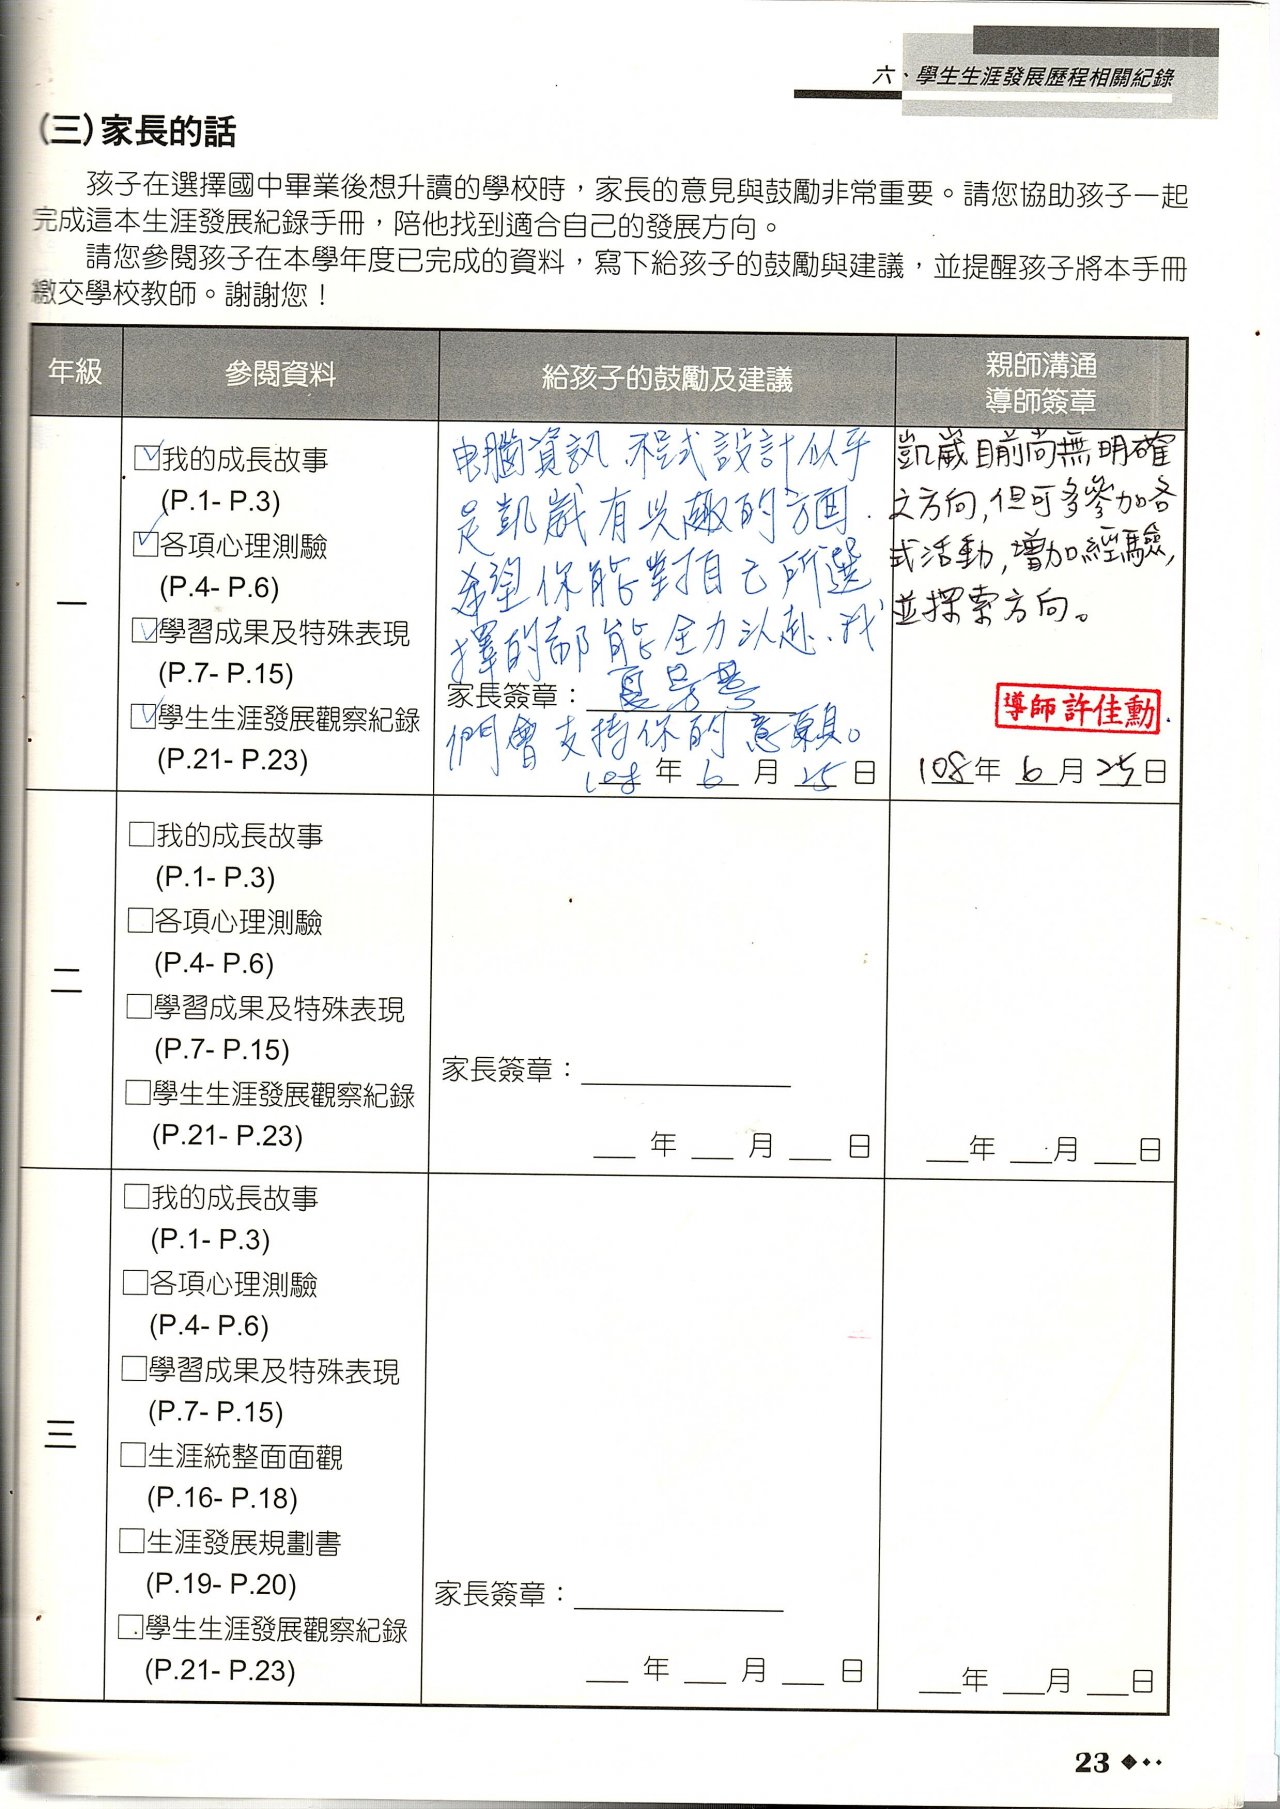 六、學生生涯發展歷程相關紀錄
(三)家長的話
孩子在選擇國中畢業後想升讀的學校時，家長的意見與鼓勵非常重要。請您協助孩子一起
完成這本生涯發展紀錄手冊，陪他找到適合自己的發展方向。
請您參閱孩子在本學年度已完成的資料，寫下給孩子的鼓勵與建議，並提醒孩子將本手冊
繳交學校教師。謝謝您！
年級
參閱資料
給孩子的鼓勵及建議
親師溝通
導師簽章
一
☑我的成長故事
(P.1- P.3)
☑各項心理測驗
(P.4- P.6)
☑學習成果及特殊表現
(P.7- P.15)
☑學生生涯發展觀察紀錄
(P.21- P.23)
电腦資訊、程式設計似乎
是凱崴有興趣的方面.
希望你能對自己所選
擇的都能全力以赴、我
家長簽章：
們會支持你的意願。
108 年 6 月 25 日
凱崴目前尚無明確
之方向,但可多參加各
式活動,增加經驗,
並探索方向。
導師許佳勳
108年 6月 25日
二
□我的成長故事
(P.1- P.3)
□各項心理測驗
(P.4- P.6)
□學習成果及特殊表現
(P.7- P.15)
□學生生涯發展觀察紀錄
(P.21- P.23)
家長簽章：
年 月 日
年 月 日
三
□我的成長故事
(P.1- P.3)
□各項心理測驗
(P.4- P.6)
□學習成果及特殊表現
(P.7- P.15)
□生涯統整面面觀
(P.16- P.18)
□生涯發展規劃書
(P.19- P.20)
□學生生涯發展觀察紀錄
(P.21- P.23)
家長簽章：
年 月 日
年 月 日
23